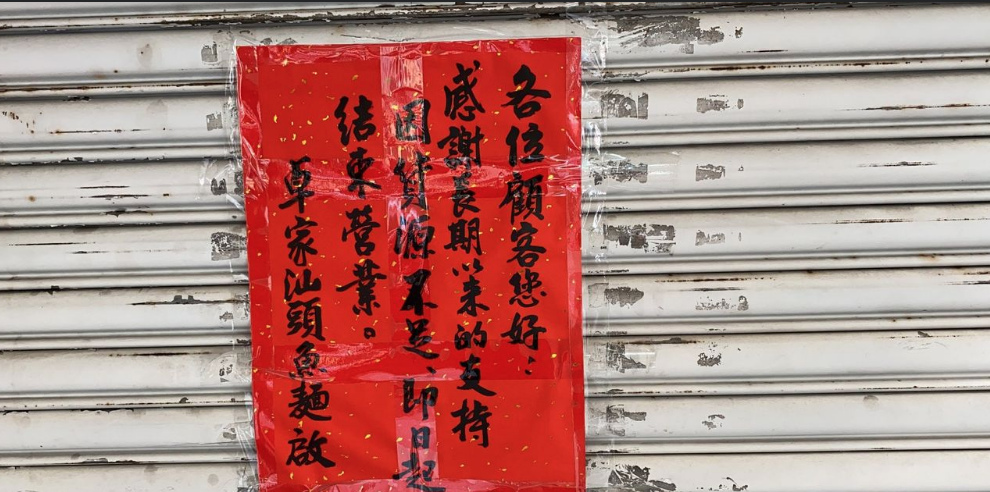 各位顧客您好：
感謝長期以來的支持
因貨源不足、即日起
結束營業。
覃家汕頭魚麵啟